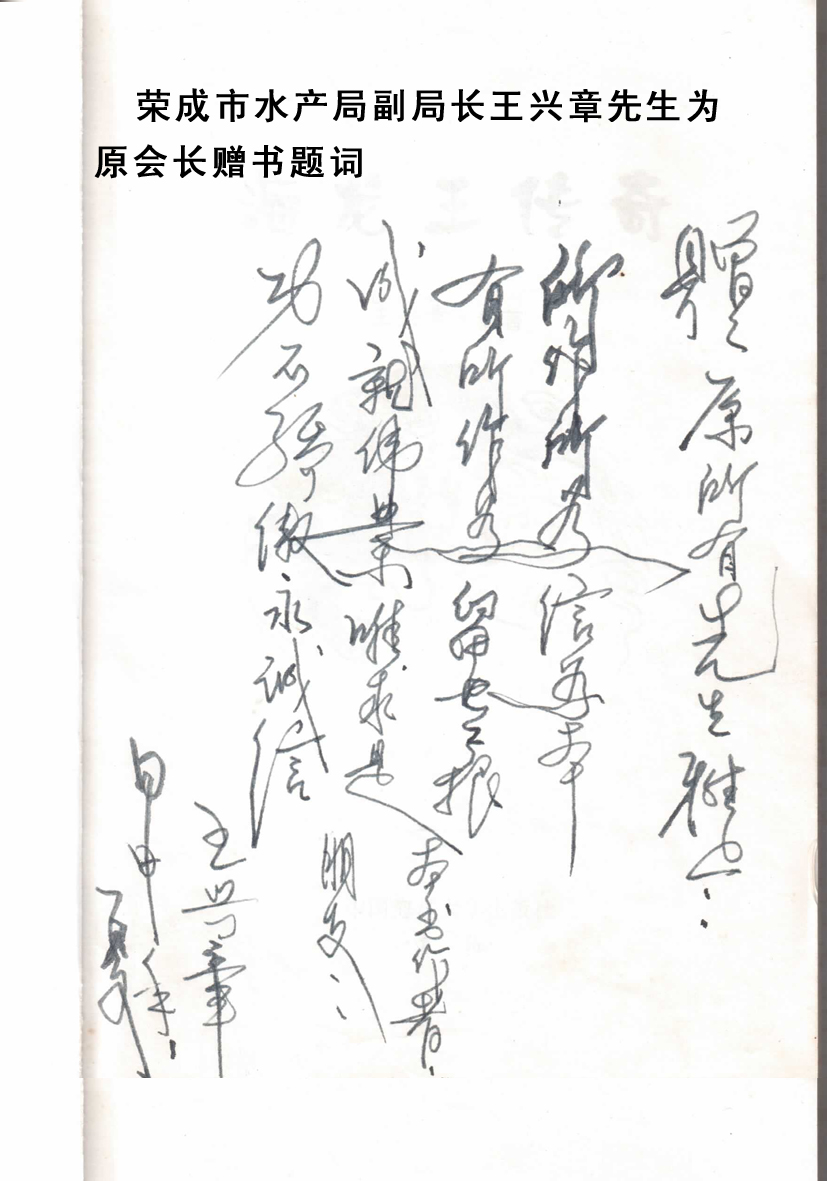 荣成市水产局副局长王兴章先生为
原会长赠书题词
赠原所有先生雅正：
所作所为信为本
有所作为留世根
成就伟业唯求是
功不骄傲永诚信
本书作者：
朋友：
王兴章
甲申年：
夏